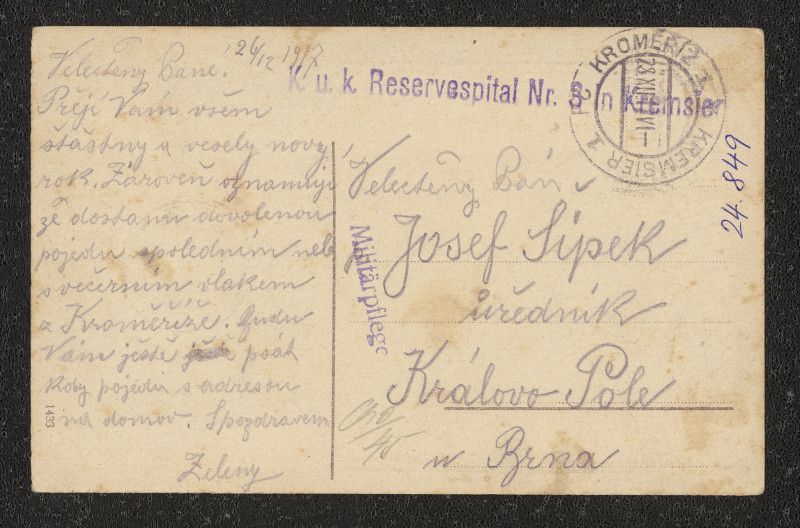 26/12 1917
Velectěný Pane!
Přeji Vám všem
šťastný a veselý nový
rok. Zároveň oznamuji
že dostanu dovolenou
pojedu posledním neb
s večerním vlakem
z Kroměříže. Budu
Vám ještě psát
kdy pojedu s adresou
na domov. S pozdravem
Zelený
1433
K. u. k. Reservespital Nr. 3 in Kremsier
KROMĚŘÍŽ 1
KREMSIER 1
24.849
Militärpflege
Velectěný Pán
Josef Šípek
úředník
Královo Pole
u Brna